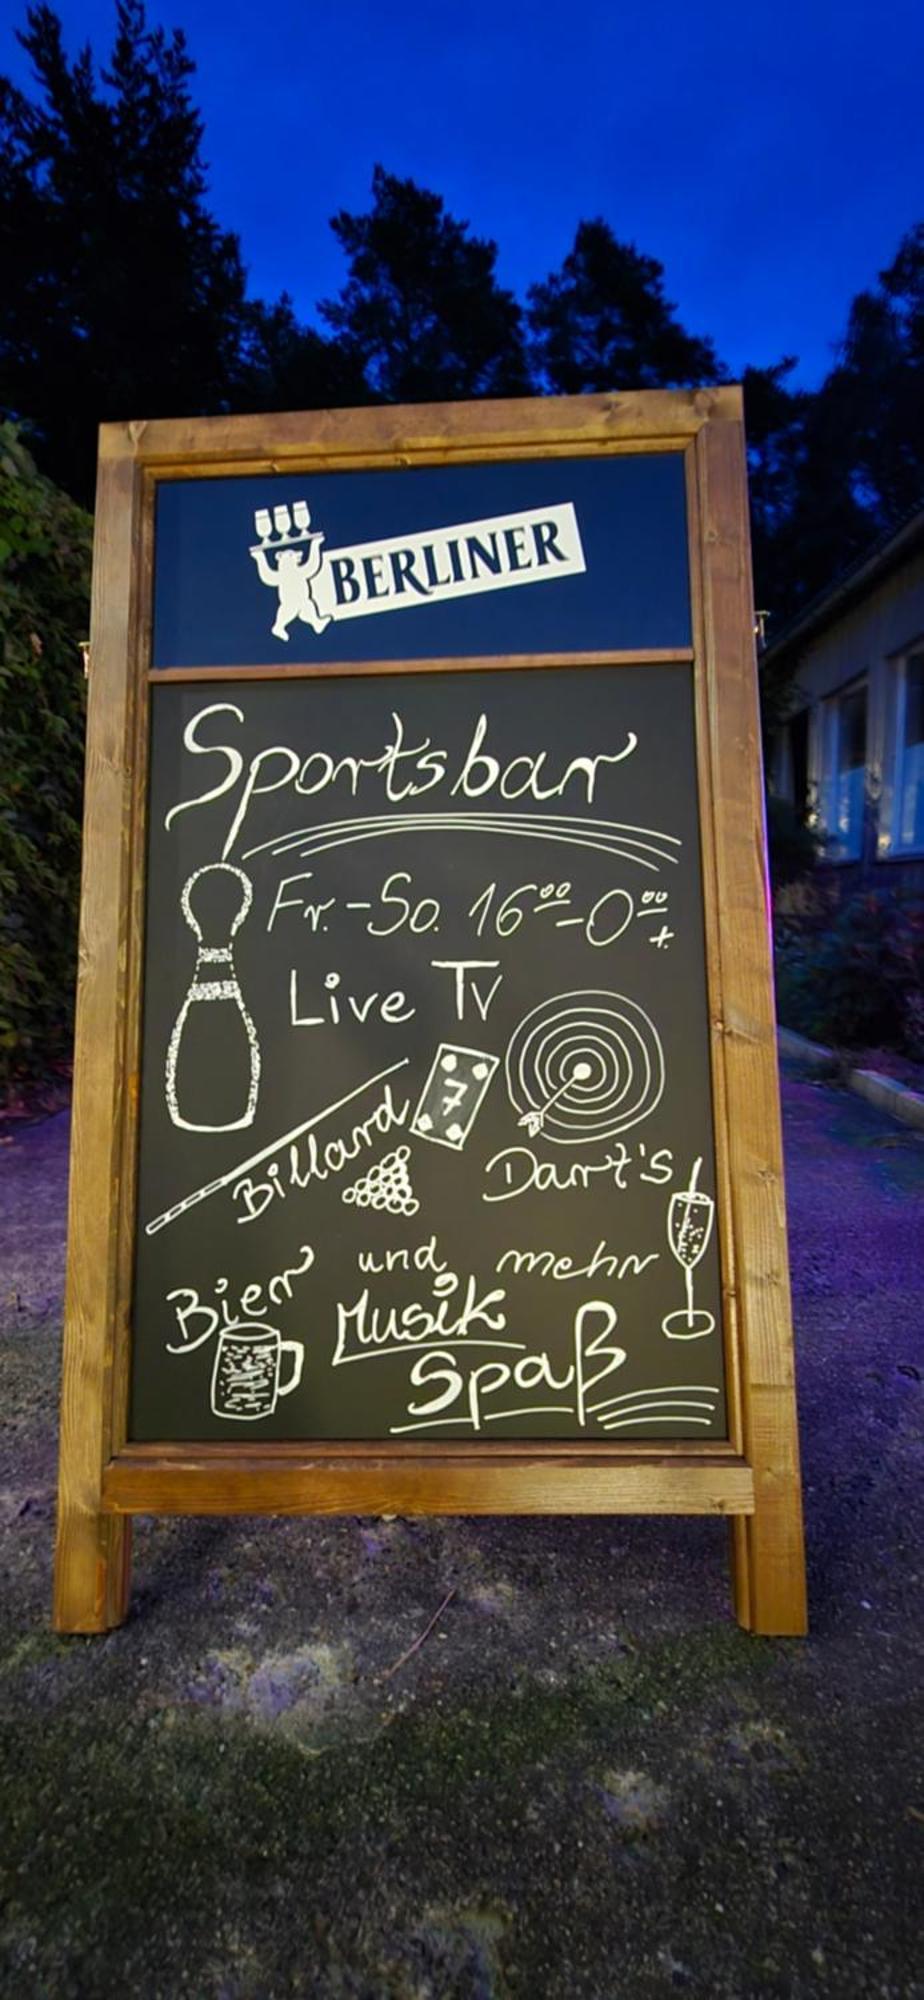 BERLINER
Sportsbar
Fr.-So. 16⁰⁰-0⁰⁰+
Live TV
7
Billard
Dart's
Bier und mehr
Musik
Spaß